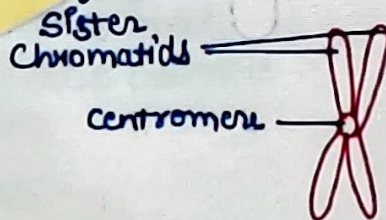 Sister
Chromatids
Centromere